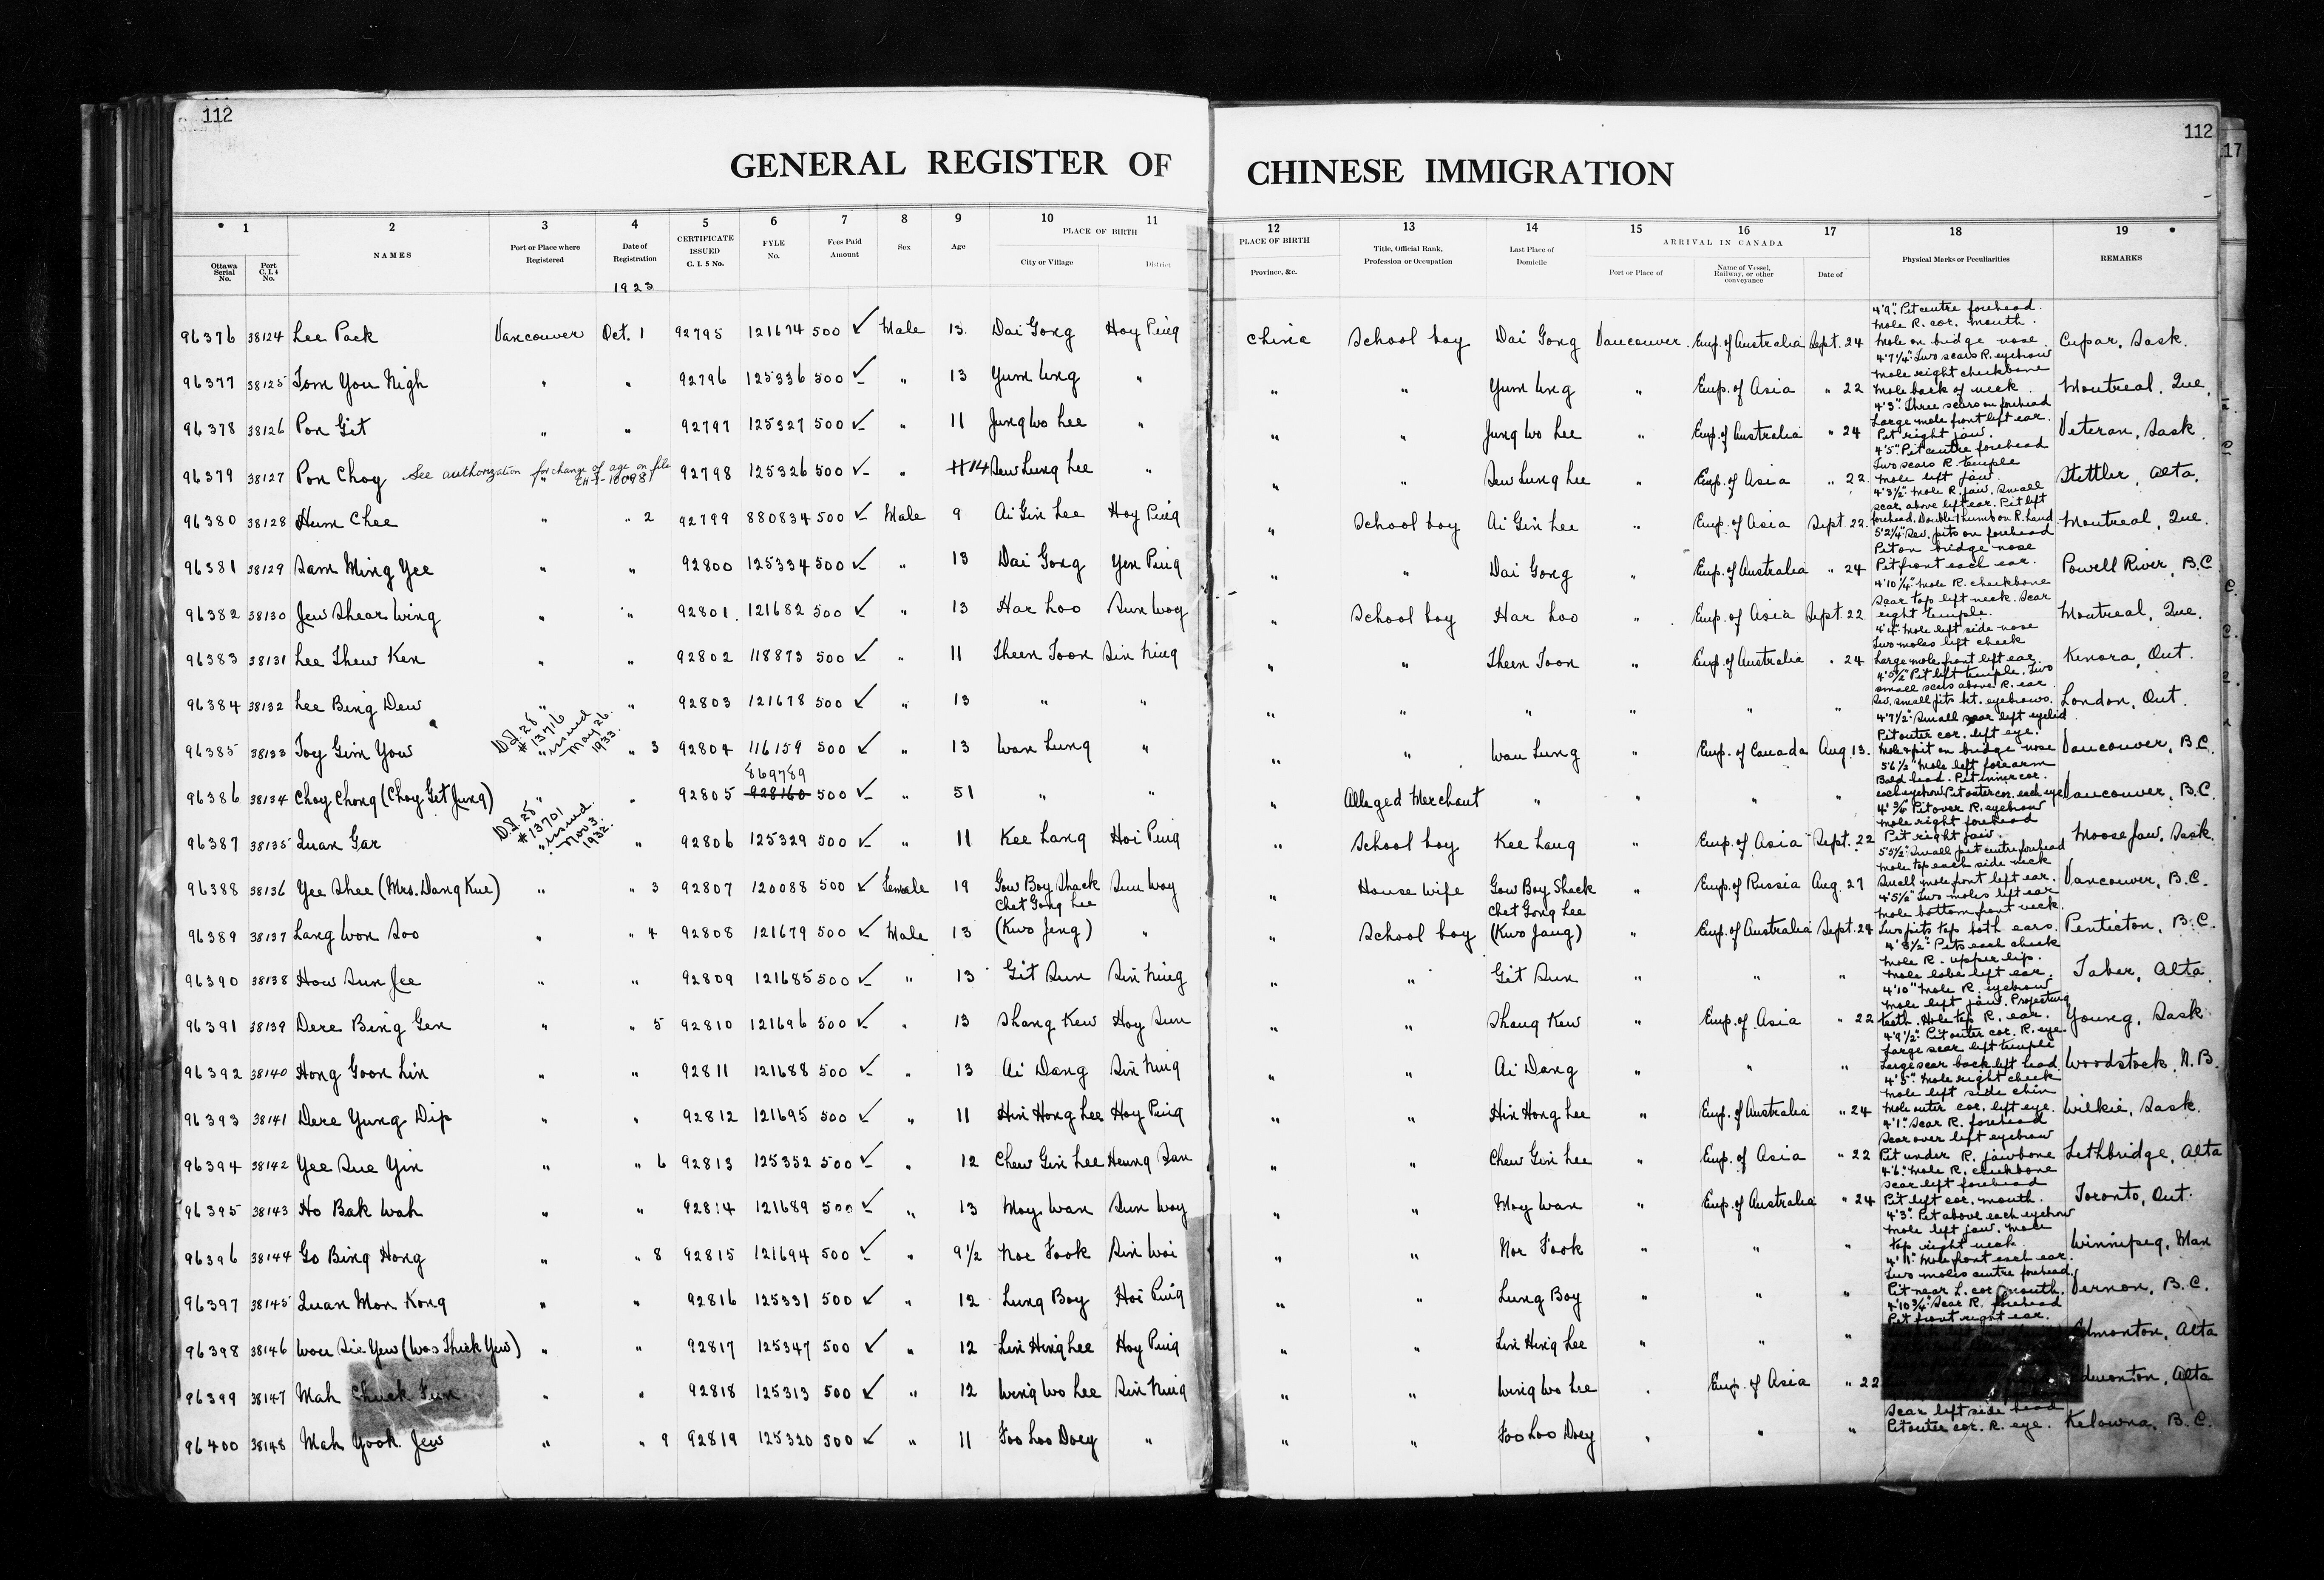 112
112
17
GENERAL REGISTER OF CHINESE IMMIGRATION
1 2 3 4 5 6 7 8 9 10 11 12 13 14 15 16 17 18 19
Ottawa Serial No. Port C.I.4 No. NAMES Port or Place where Registered Date of Registration CERTIFICATE ISSUED C. I. 5 No. FYLE No. Fees Paid Amount Sex Age PLACE OF BIRTH City or Village District PLACE OF BIRTH Province, &c. Title, Official Rank, Profession or Occupation Last Place of Domicile ARRIVAL IN CANADA Port or Place of Name of Vessel, Railway, or other conveyance Date of Physical Marks or Peculiarities REMARKS
1923
96376 38124 Lee Pack Vancouver Oct. 1 92795 121674 500 ✓ Male 13 Dai Gong Hoy Ping China School boy Dai Gong Vancouver Emp. of Australia Sept. 24 4'9". Pit centre forehead. Mole R. cor. mouth. Mole on bridge nose Cupar, Sask.
96377 38125 Tom You Nigh " " 92796 125336 500 ✓ " 13 Yum Ung " " " Yum Ung " Emp. of Asia " 22 4'7¼" Two scars R. eyebrow Mole right cheekbone Mole back of neck Montreal, Que.
96378 38126 Pon Git " " 92797 125327 500 ✓ " 11 Jung Wo Lee " " " Jung Wo Lee " Emp. of Australia " 24 4'3". Three scars on forehead Large mole front left ear. Pit right jaw. Veteran, Sask.
96379 38127 Pon Choy See authorization for change of age on file " 92798 125326 500 ✓ " 11 14 Sew Lung Lee " " " Sew Lung Lee " Emp. of Asia " 22 4'5". Pit centre forehead Two scars R. temple Mole left jaw Stettler, Alta.
96380 38128 Hum Chee " " 2 92799 880834 500 ✓ Male 9 Ai Gin Lee Hoy Ping " School boy Ai Gin Lee " Emp. of Asia Sept. 22 4'3½" Mole R. jaw. Small scar above left ear. Pit left forehead. Double thumb on R. hand Montreal, Que.
96381 38129 Sam Ming Yee " " 92800 125334 500 ✓ " 13 Dai Gong Yen Ping " " Dai Gong " Emp. of Australia " 24 5'2¼" Sev. pits on forehead Pit on bridge nose Pit front each ear. Powell River, B.C.
96382 38130 Jew Shear Wing " " 92801 121682 500 ✓ " 13 Har Loo Sun Woy " School boy Har Loo " Emp. of Asia Sept. 22 4'10¼" Mole R. cheekbone Scar top left neck. Scar right temple. Montreal, Que.
96383 38131 Lee Thew Ken " " 92802 118873 500 ✓ " 11 Theen Toon Sin Ning " " Theen Toon " Emp. of Australia " 24 4'4" Mole left side nose Two moles left cheek Large mole front left ear. Kenora, Ont.
96384 38132 Lee Bing Dew " " 92803 121678 500 ✓ " 13 " " " " " " " " 4'5½" Pit left temple. Two small scars above R. ear. Sev. small pits bt. eyebrows. London, Ont.
96385 38133 Toy Gim Yow #13716 issued May 26. 1933. " " 3 92804 116159 500 ✓ " 13 Wan Lung " " " Wan Lung " Emp. of Canada Aug. 13. 4'7½" Small scar left eyelid Pit outer cor. left eye. Mole & pit on bridge nose Vancouver, B.C.
96386 38134 Choy Chong (Choy Get Jung) " " 92805 869789 928160 500 ✓ " 51 " " " Alleged Merchant " " " " 5'6½" Mole left forearm Bald head. Pit inner cor. each eyebrow Pit outer cor. each eye Vancouver, B.C.
96387 38135 Quan Gar #13701 issued Nov 3. 1932. " " 92806 125329 500 ✓ " 11 Kee Lang Hoi Ping " School boy Kee Lang " Emp. of Asia Sept. 22 Pit over R. eyebrow Mole right forehead Pit right jaw. Moose Jaw, Sask.
96388 38136 Yee Shee (Mrs. Dang Kue) " " 3 92807 120088 500 ✓ Female 19 Gow Boy Shack Sun Woy " House wife Gow Boy Shack " Emp. of Russia Aug. 27 5'5½" Small pit centre forehead Mole top each side neck Small mole front left ear. Vancouver, B.C.
96389 38137 Lang Won Soo " " 4 92808 121679 500 ✓ Male 13 Chet Gong Lee (Kwo Jeng) " " School boy Chet Gong Lee (Kwo Jang) " Emp. of Australia Sept. 24 4'5½" Two moles left ear Mole bottom front neck. Two pits top both ears. Penticton, B.C.
96390 38138 How Sun Jee " " 92809 121685 500 ✓ " 13 Git Sun Sin Ning " " Git Sun " " " 4'8½" Pits each cheek Mole R. upper lip. Mole lobe left ear. Taber, Alta.
96391 38139 Dere Bing Gen " " 5 92810 121696 500 ✓ " 13 Shang Kew Hoy Sun " " Shang Kew " Emp. of Asia " 22 4'10" Mole R. eyebrow Mole left jaw. Projecting teeth. Hole top R. ear. Young, Sask.
96392 38140 Hong Goon Lin " " 92811 121688 500 ✓ " 13 Ai Dang Sin Ning " " Ai Dang " " " 4'9½". Pit outer cor. R. eye. Large scar left temple Large scar back left head. Woodstock, N.B.
96393 38141 Dere Yung Dip " " 92812 121695 500 ✓ " 11 Hin Hong Lee Hoy Ping " " Hin Hong Lee " Emp. of Australia " 24 4'5". Mole right cheek Mole left side chin Mole outer cor. left eye. Wilkie, Sask.
96394 38142 Yee Sue Yin " " 6 92813 125352 500 ✓ " 12 Chew Gin Lee Heung San " " Chew Gin Lee " Emp. of Asia " 22 4'1". Scar R. forehead Scar over left eyebrow Pit under R. jawbone Lethbridge, Alta
96395 38143 Ho Bak Wah " " 92814 121689 500 ✓ " 13 Moy Wan Sun Woy " " Moy Wan " Emp. of Australia " 24 4'6". Mole R. cheekbone Scar left forehead Pit left cor. mouth. Toronto, Ont.
96396 38144 Go Bing Hong " " 8 92815 121694 500 ✓ " 9½ Nor Fook Sin Woi " " Nor Fook " " " 4'3". Pit above each eyebrow Mole left jaw. Mole top right neck Winnipeg, Man
96397 38145 Quan Mon Kong " " 92816 125331 500 ✓ " 12 Lung Boy Hoi Ping " " Lung Boy " " " 4'11". Mole front each ear. Two moles centre forehead. Pit near L. cor mouth. Vernon, B.C.
96398 38146 Wou Sie Yew (Was Thick Yew) " " 92817 125347 500 ✓ " 12 Lin Hing Lee Hoy Ping " " Lin Hing Lee " " " 4'10¾" Scar R. forehead Pit front right ear. Edmonton, Alta
96399 38147 Mah Chuck Fun " " 92818 125313 500 ✓ " 12 Wing Wo Lee Sin Ning " " Wing Wo Lee " Emp. of Asia " 22 Edmonton, Alta
96400 38148 Mah Yook Jew " " 9 92819 125320 500 ✓ " 11 Foo Loo Doey " " " Foo Loo Doey " " " Scar left side head Pit outer cor. R. eye. Kelowna, B.C.